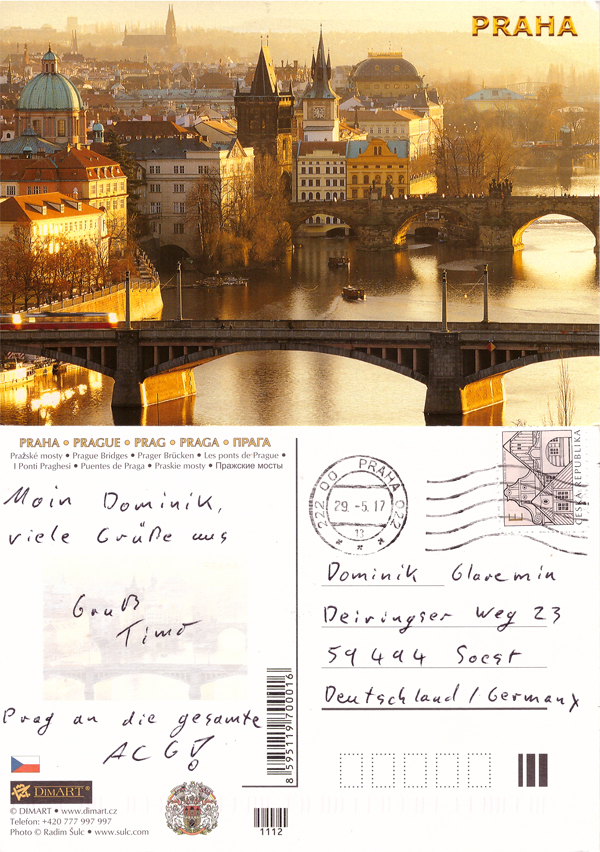 PRAHA
PRAHA • PRAGUE • PRAG • PRAGA • ПРАГА
Pražské mosty • Prague Bridges • Prager Brücken • Les ponts de Prague •
I Ponti Praghesi • Puentes de Praga • Praskie mosty • Пражские мосты
Moin Dominik,
viele Grüße aus
Gruß
Timo
Prag an die gesamte
ACG!
DIMART
© DIMART • www.dimart.cz
Telefon: +420 777 997 997
Photo © Radim Šulc • www.sulc.com
8595119700016
1112
222 00 PRAHA 022
29. -5. 17
13
E
ČESKÁ REPUBLIKA
Dominik Glaremin
Deiringser Weg 23
59494 Soest
Deutschland / Germany